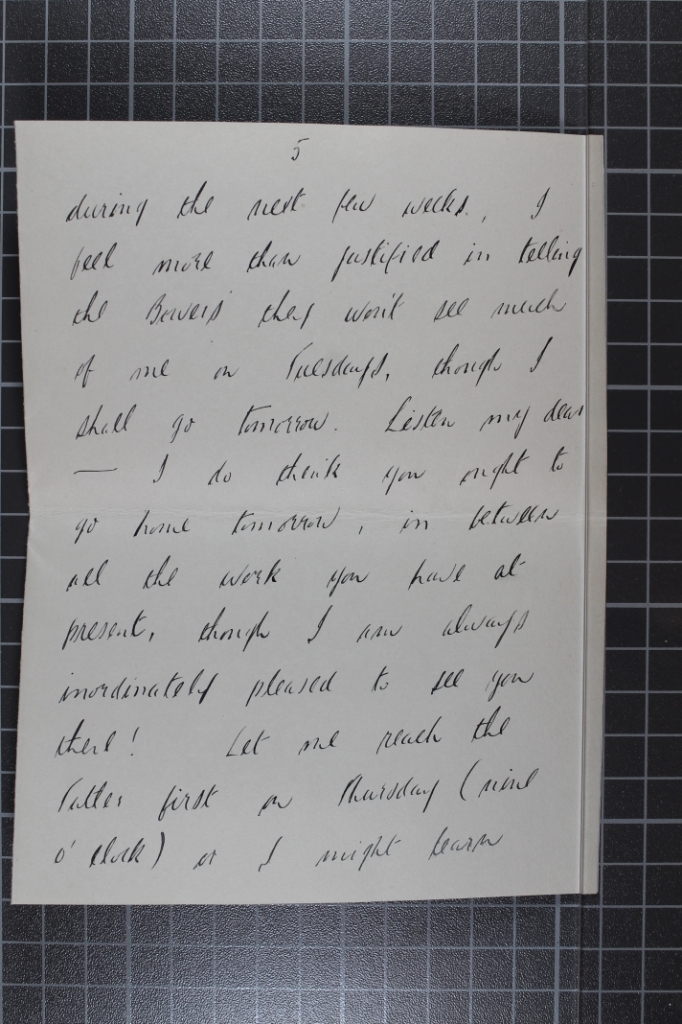 5
during the next few weeks, I
feel more than justified in telling
the Bowers they won't see much
of me on Tuesdays, though I
shall go tomorrow. Listen my dear
— I do think you ought to
go home tomorrow, in between
all the work you have at
present, though I am always
inordinately pleased to see you
there! Let me reach the
first on Thursday (nine
o'clock) or I might learn